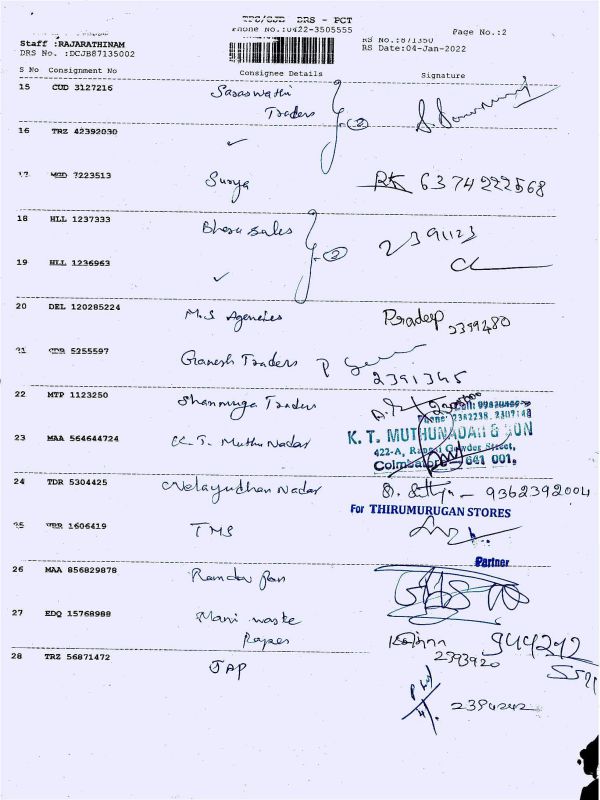 TPC/CJB DRS - PCT
Phone No.:0422-3505555
Page No.:2
Staff :RAJARATHINAM
RS No.:871350
DRS No. :DCJB87135002
RS Date:04-Jan-2022
S No Consignment No Consignee Details Signature
15 CUD 3127216 Saraswathi Traders
2
16 TRZ 42392030 ✓
17 MGD 7223513 Surya 6374222568
18 HLL 1237333 Bhera Sales 2391123
2
19 HLL 1236963 ✓
20 DEL 120285224 M.S Agencies Pradeep 2399480
21 5255597 Ganesh Traders
2391345
22 MTP 1123250 Shanmuga Traders
Phone: 2382238, 2307148
23 MAA 564644724 K.T. Muthu Nadar K. T. MUTHUNADAR & SON
422-A, Rangai Gowder Street,
Coimbatore - 641 001.
24 TDR 5304425 Velayudhan Nadar 9362392004
For THIRUMURUGAN STORES
25 1606419 TMS
Partner
26 MAA 856829878 Ramdev
27 EDQ 15768988 Mani waste
Paper
2393920
28 TRZ 56871472 JAP
2394242